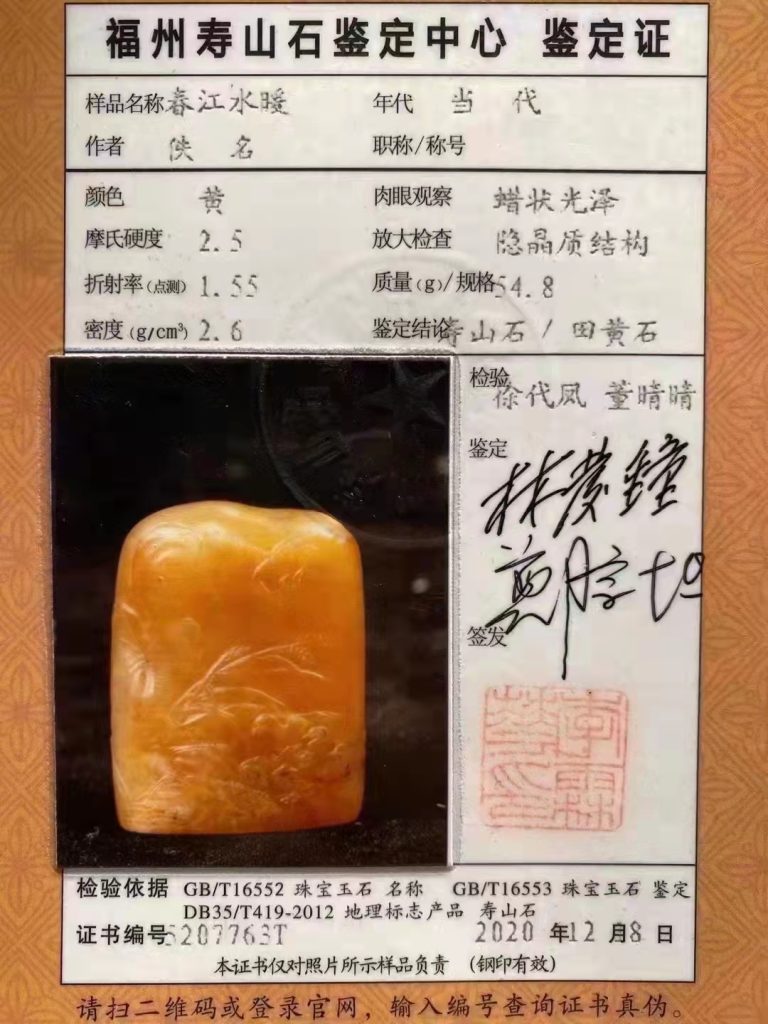 福州寿山石鉴定中心 鉴定证
样品名称 春江水暖 年代 当代
作者 佚名 职称/称号
颜色 黄 肉眼观察 蜡状光泽
摩氏硬度 2.5 放大检查 隐晶质结构
折射率(点测) 1.55 质量(g)/规格 54.8
密度(g/cm³) 2.6 鉴定结论 寿山石 / 田黄石
检验
徐代凤 董晴晴
鉴定
签发
检验依据 GB/T16552 珠宝玉石 名称 GB/T16553 珠宝玉石 鉴定
DB35/T419-2012 地理标志产品 寿山石
证书编号 5207763T 2020 年 12 月 8 日
本证书仅对照片所示样品负责 (钢印有效)
请扫二维码或登录官网,输入编号查询证书真伪。